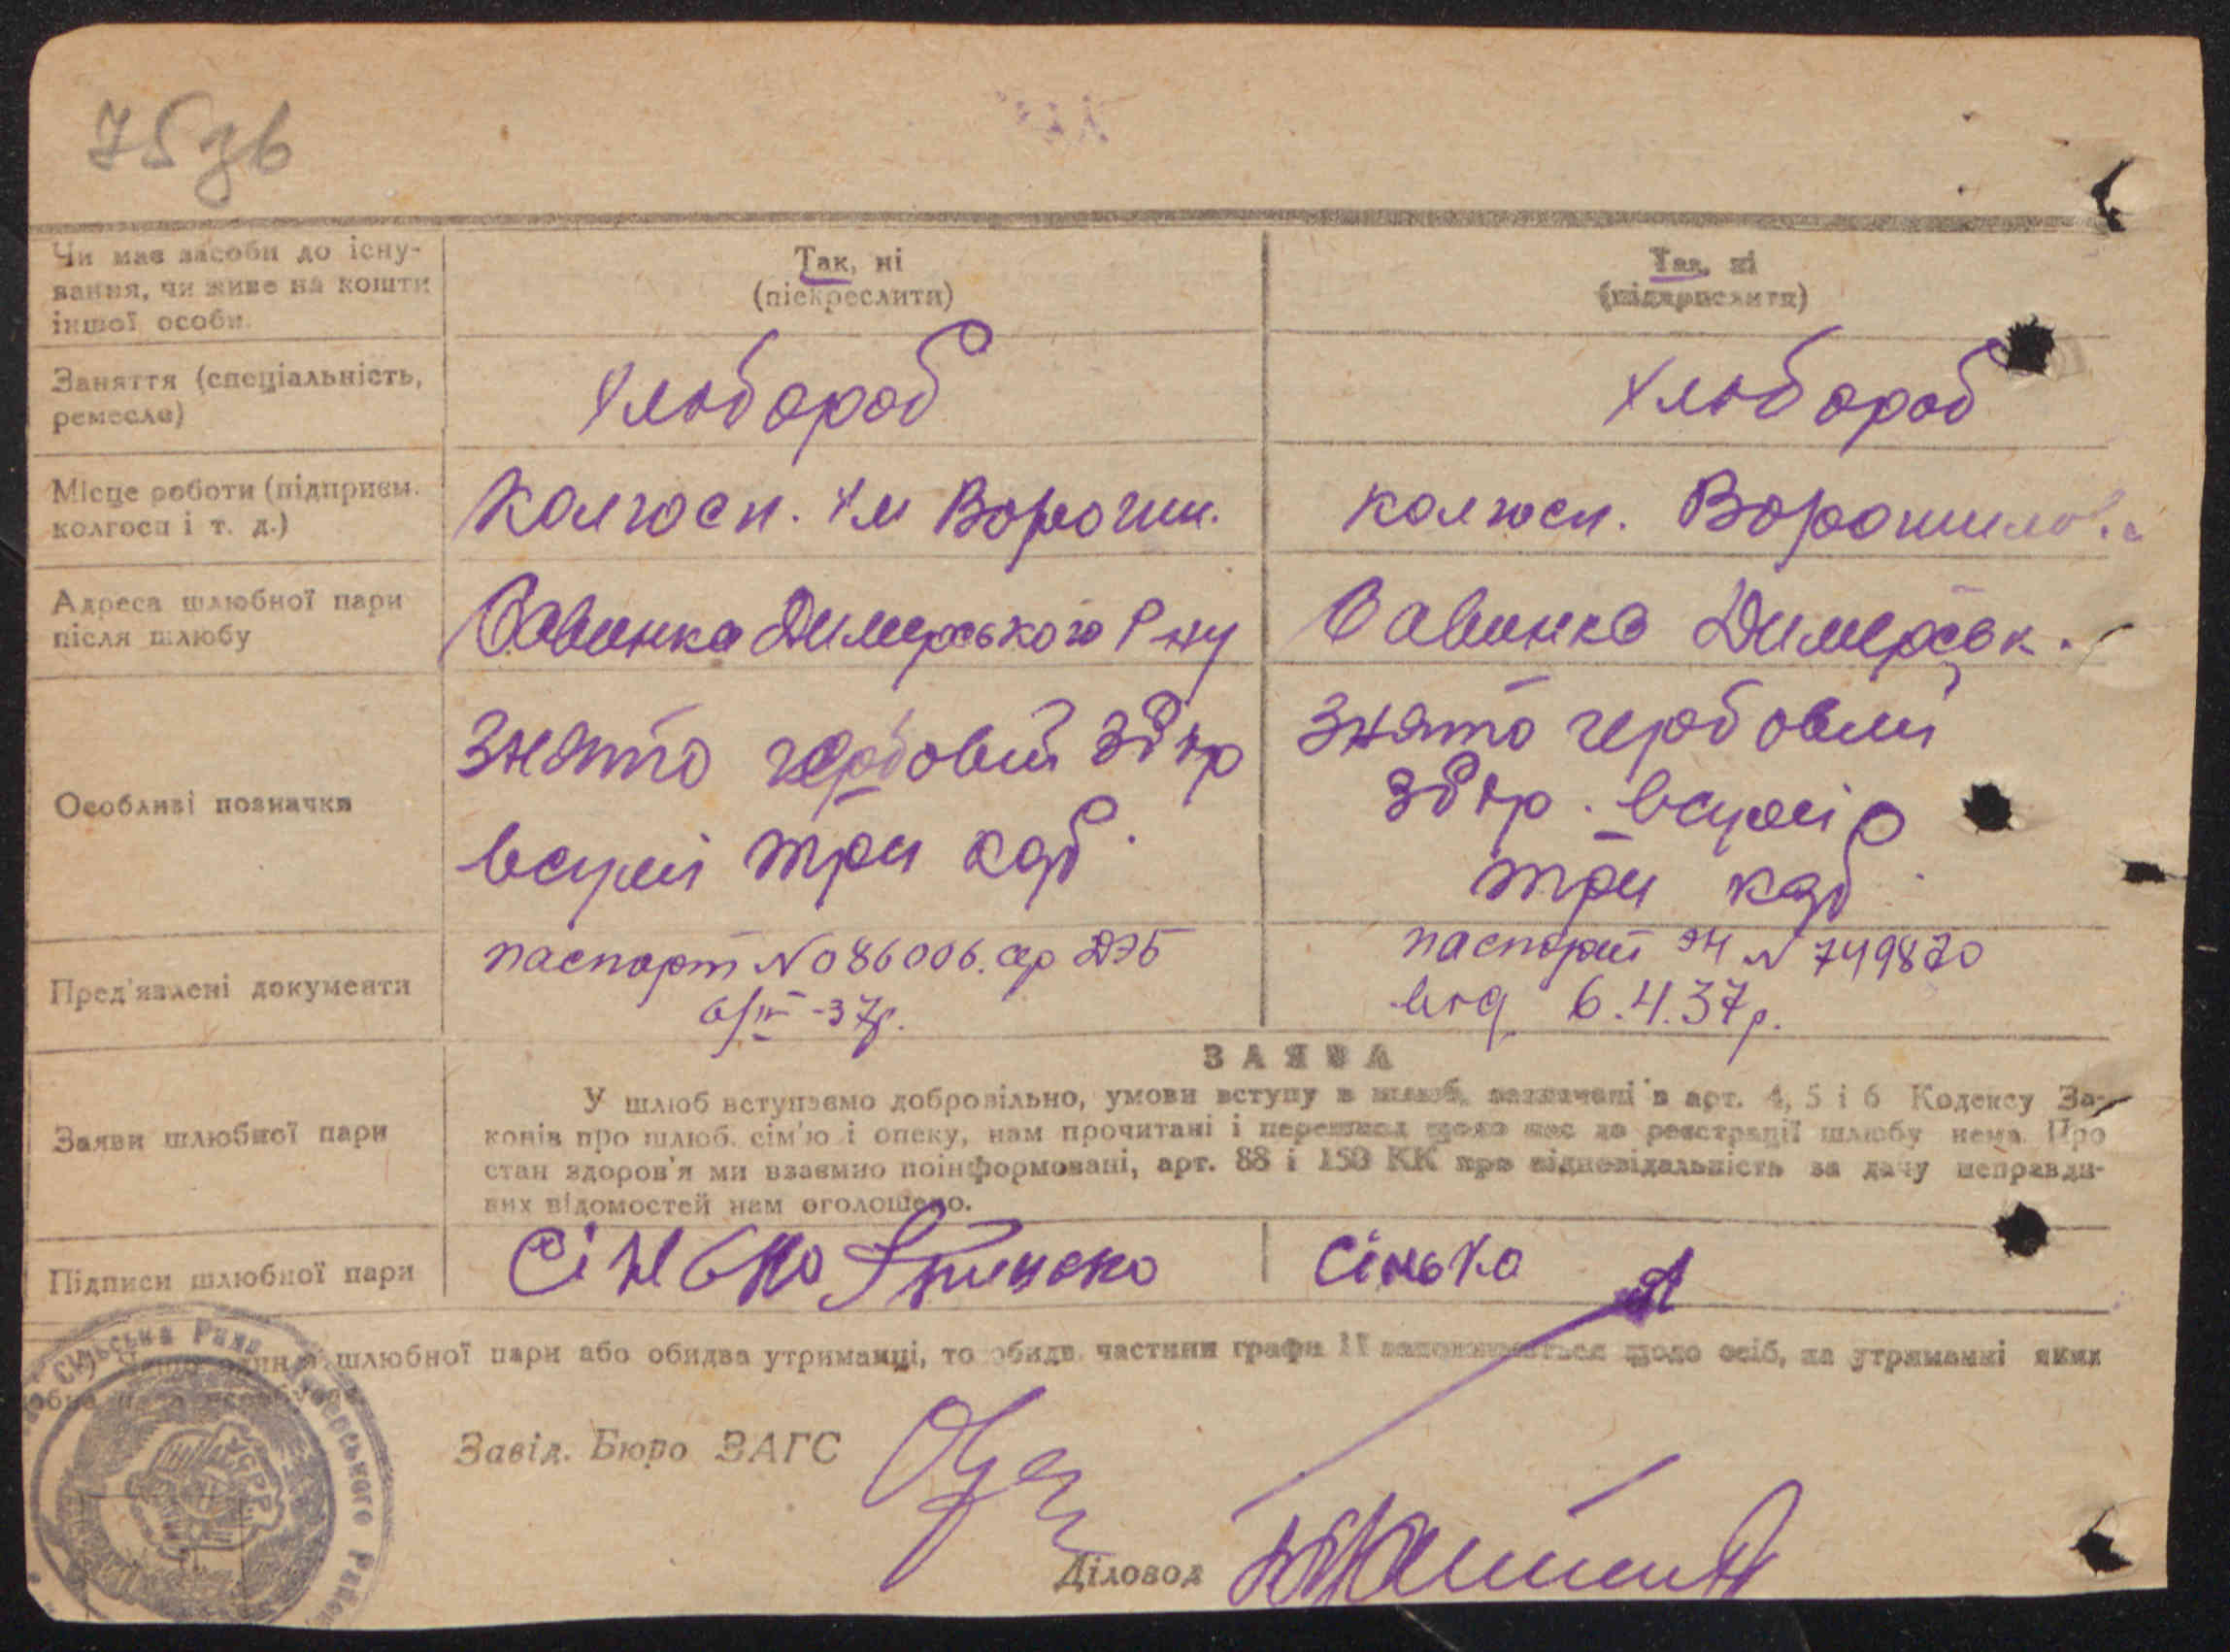 75 зв
Чи має засоби до існу-
вання, чи живе на кошти
іншої особи
Так, ні
(піскреслити)
Так, ні
(підкреслити)
Заняття (спеціальність,
ремесло)
Хлібороб
Хлібороб
Місце роботи (підприєм.
колгосп і т. д.)
Колгосп. Ім Ворошил.
колгосп. Ворошилова
Адреса шлюбної пари
після шлюбу
Савинка Димерського Р ну
Савинка Димерськ.
Особливі позначки
знято гербовий збір
всумі три карб.
знято гербовий
збір. всумі
три карб
Пред'явлені документи
паспорт № 086006.
6/IV-37р.
паспорт № 749870
від 6.4.37р.
Заяви шлюбної пари
ЗАЯВА
У шлюб вступаємо добровільно, умови вступу в шлюб, зазначені в арт. 4, 5 і 6 Кодексу За-
конів про шлюб. сім'ю і опеку, нам прочитані і перешкод щодо нас до реєстрації шлюбу нема. Про
стан здоров'я ми взаємно поінформовані, арт. 88 і 150 КК про відповідальність за дачу неправди-
вих відомостей нам оголошено.
Підписи шлюбної пари
Сінько
Сінько
шлюбної пари або обидва утриманці, то обидві частини графи 11 заповнюється щодо осіб, на утриманні яких
Сільська Рада
Завід. Бюро ЗАГС
Діловод